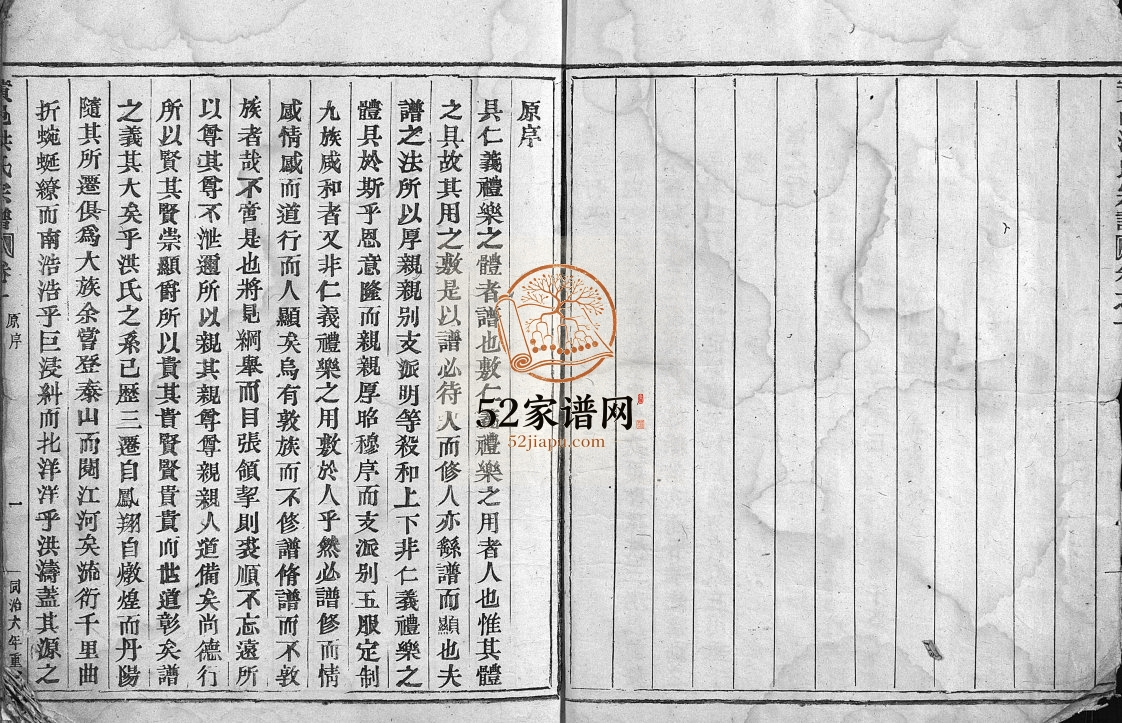 原序
具仁義禮樂之體者譜也敷仁義禮樂之用者人也惟其體
之具故其用之敷是以譜必待人而修人亦繇譜而顯也夫
譜之法所以厚親親别支派明等殺和上下非仁義禮樂之
體具於斯乎恩意隆而親親厚昭穆序而支派别五服定制
九族咸和者又非仁義禮樂之用敷於人乎然必譜修而情
感情感而道行而人顯矣烏有敦族而不修譜脩譜而不敦
族者哉不啻是也將見綱舉而目張領挈則裘順不忘遠所
以尊其尊不泄邇所以親其親尊尊親親人道備矣尚德行
所以賢其賢崇顯爵所以貴其貴賢賢貴貴而世道彰矣譜
之義其大矣乎洪氏之系已歷三遷自鳳翔自燉煌而丹陽
隨其所遷俱爲大族余嘗登泰山而閱江河矣流衍千里曲
折蜿蜒繚而南浩浩乎巨浸斜而北洋洋乎洪濤蓋其源之
洪氏宗譜
原序
一
同治六年重
52家谱网
52jiapu.com